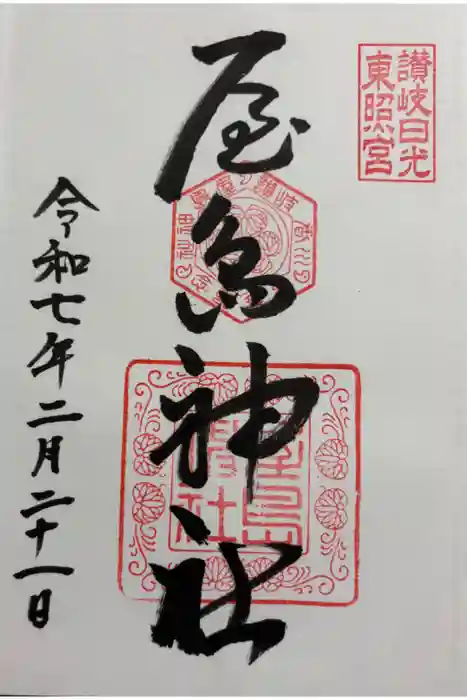 讃岐日光
東照宮
屋島神社
屋島
神社
令和七年二月二十一日